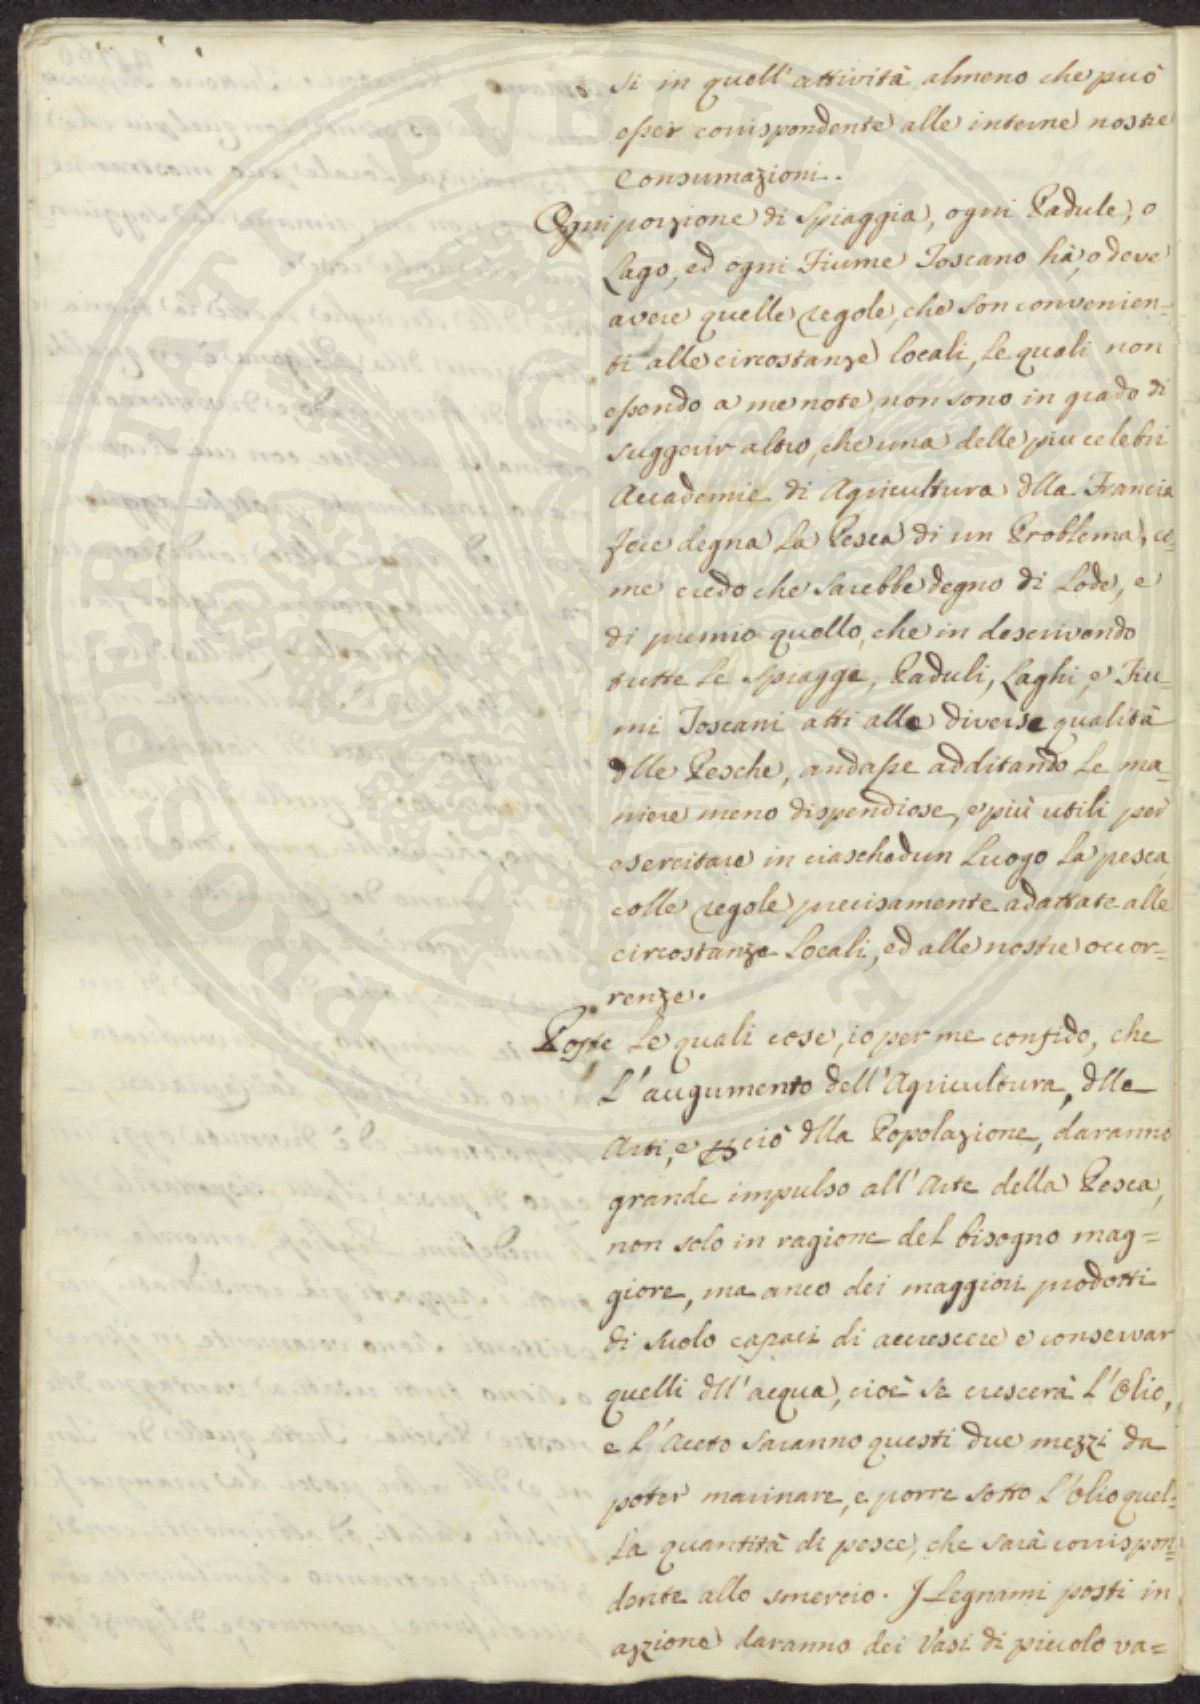 si in quell'attività almeno che può
esser corrispondente alle interne nostre
Consumazioni.
Ogni porzione di Spiaggia, ogni Padule, o
Lago, ed ogni Fiume Toscano hà, o deve
avere quelle regole, che son convenien=
ti alle circostanze locali, le quali non
essendo a me note, non sono in grado di
suggerir altro, che una delle piu celebri
Accademie di Agricultura dlla Francia
fece degna la Pesca di un Problema, co=
me credo che sarebbe degno di Lode, e
di premio quello, che in descrivendo
tutte le Spiagge, Paduli, Laghi, e Fiu=
mi Toscani atti alle diverse qualità
dlle Pesche, andasse additando le ma=
niere meno dispendiose, e più utili per
esercitare in ciaschedun Luogo la pesca
colle regole precisamente adattate alle
circostanze Locali, ed alle nostre occor=
renze.
Poste le quali cose, io per me confido, che
L'augumento dell'Agricultura, dlle
Arti, e pciò dlla Popolazione, daranno
grande impulso all'Arte della Pesca,
non solo in ragione del bisogno mag=
giore, ma anco dei maggiori prodotti
di suolo capaci di accrescere e conservar
quelli dll'acqua, cioè se crescerà L'Olio,
e L'Aceto saranno questi due mezzi da
poter marinare, e porre sotto L'Olio quel=
la quantità di pesce, che sarà corrispon=
dente allo smercio. I Legnami posti in
azzione daranno dei Vasi di piccolo va=
POSPERINATI PUBLICAE